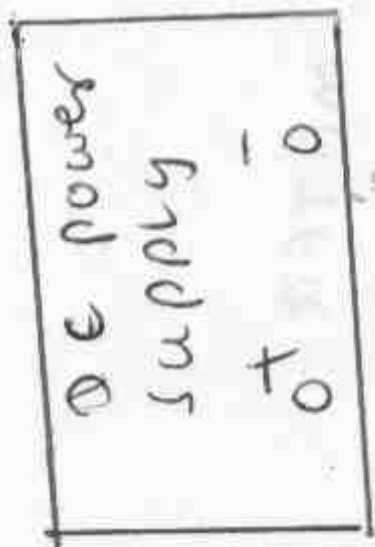 DC power
supply
+ -
o o